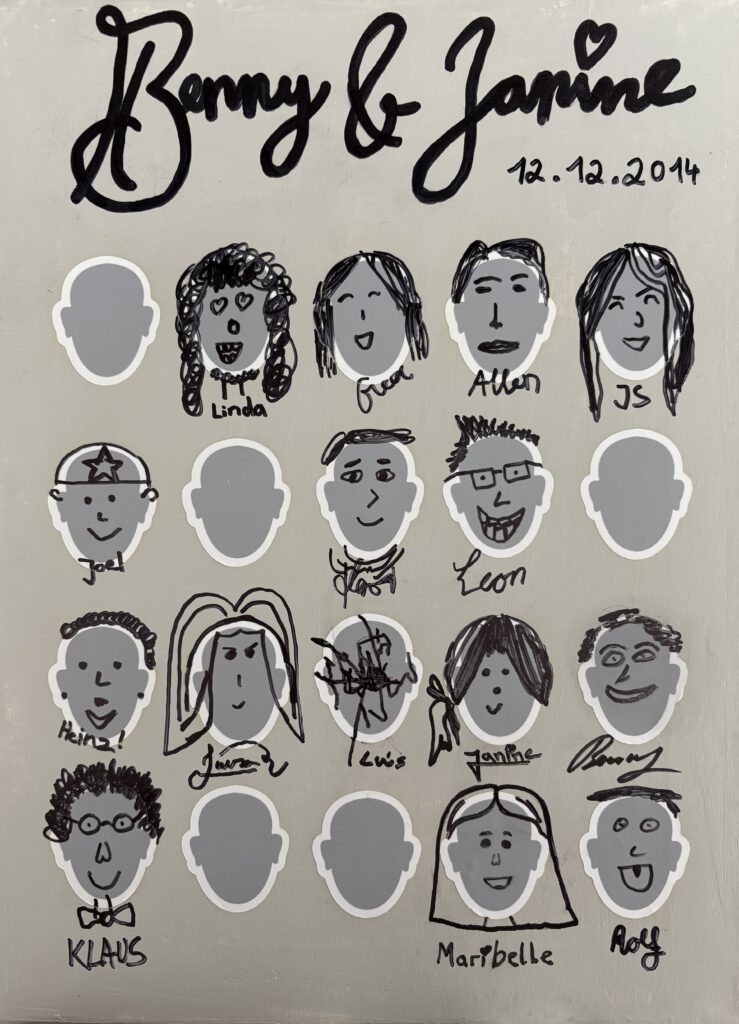 Benny & Janine
12.12.2014
Linda
Allen
JS
Joel
Leon
Heinz!
Luis
Janine
Benny
KLAUS
Maribelle
Rolf